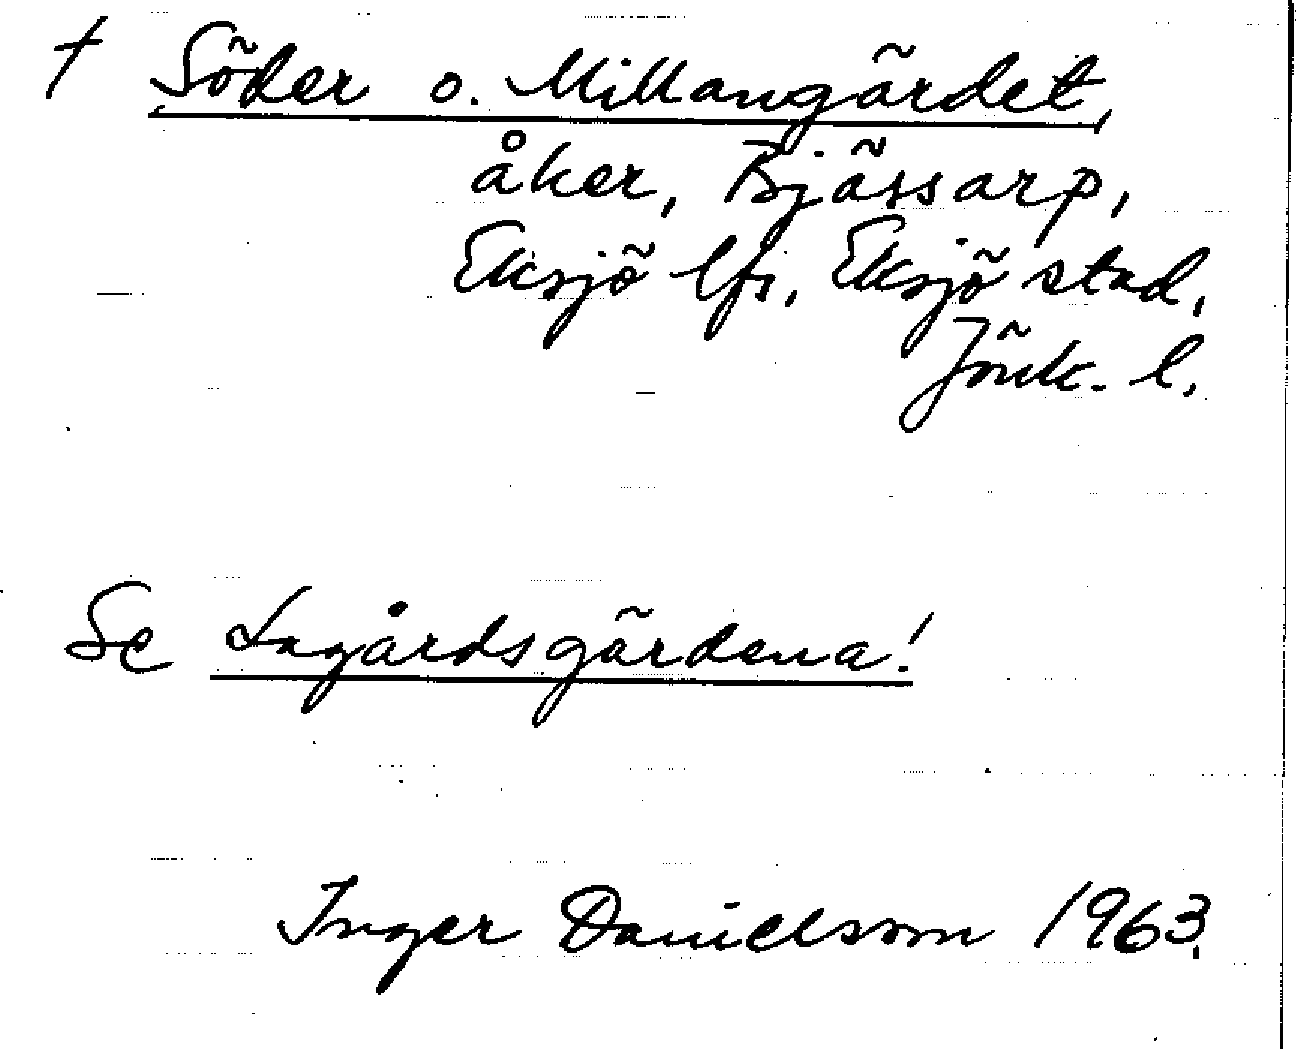 † Söder o. Millangärdet,
åker, Bjässarp,
Eksjö lfs, Eksjö stad,
Jönk. l.
Se Lagårdsgärdena!
Inger Danielsson 1963.